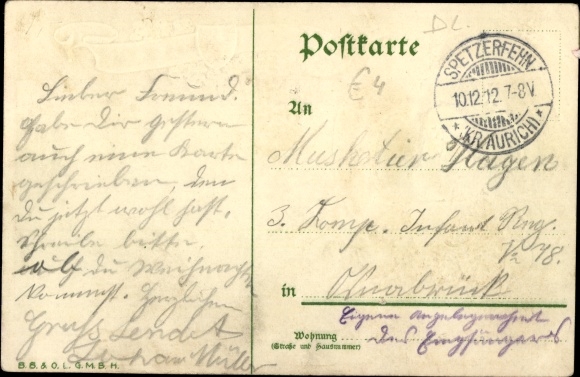 Postkarte
SPETZERFEHN
10.12.12.7-8V
* (KR. AURICH) *
DL.
€4
Lieber Freund.
Habe Dir gestern
auch eine Karte
geschrieben, den
Du jetzt wohl hast.
Schreibe bitte
ob du Weihnacht
kommst. Herzlichen
Gruß sendet
Müller
An
Musketier Hagen
3. Komp. Infant Reg.
No 78.
in Osnabrück
Wohnung
(Straße und Hausnummer)
Eigene Angelegenheit
des Empfängers
B.B. & O., L. G.M.B.H.